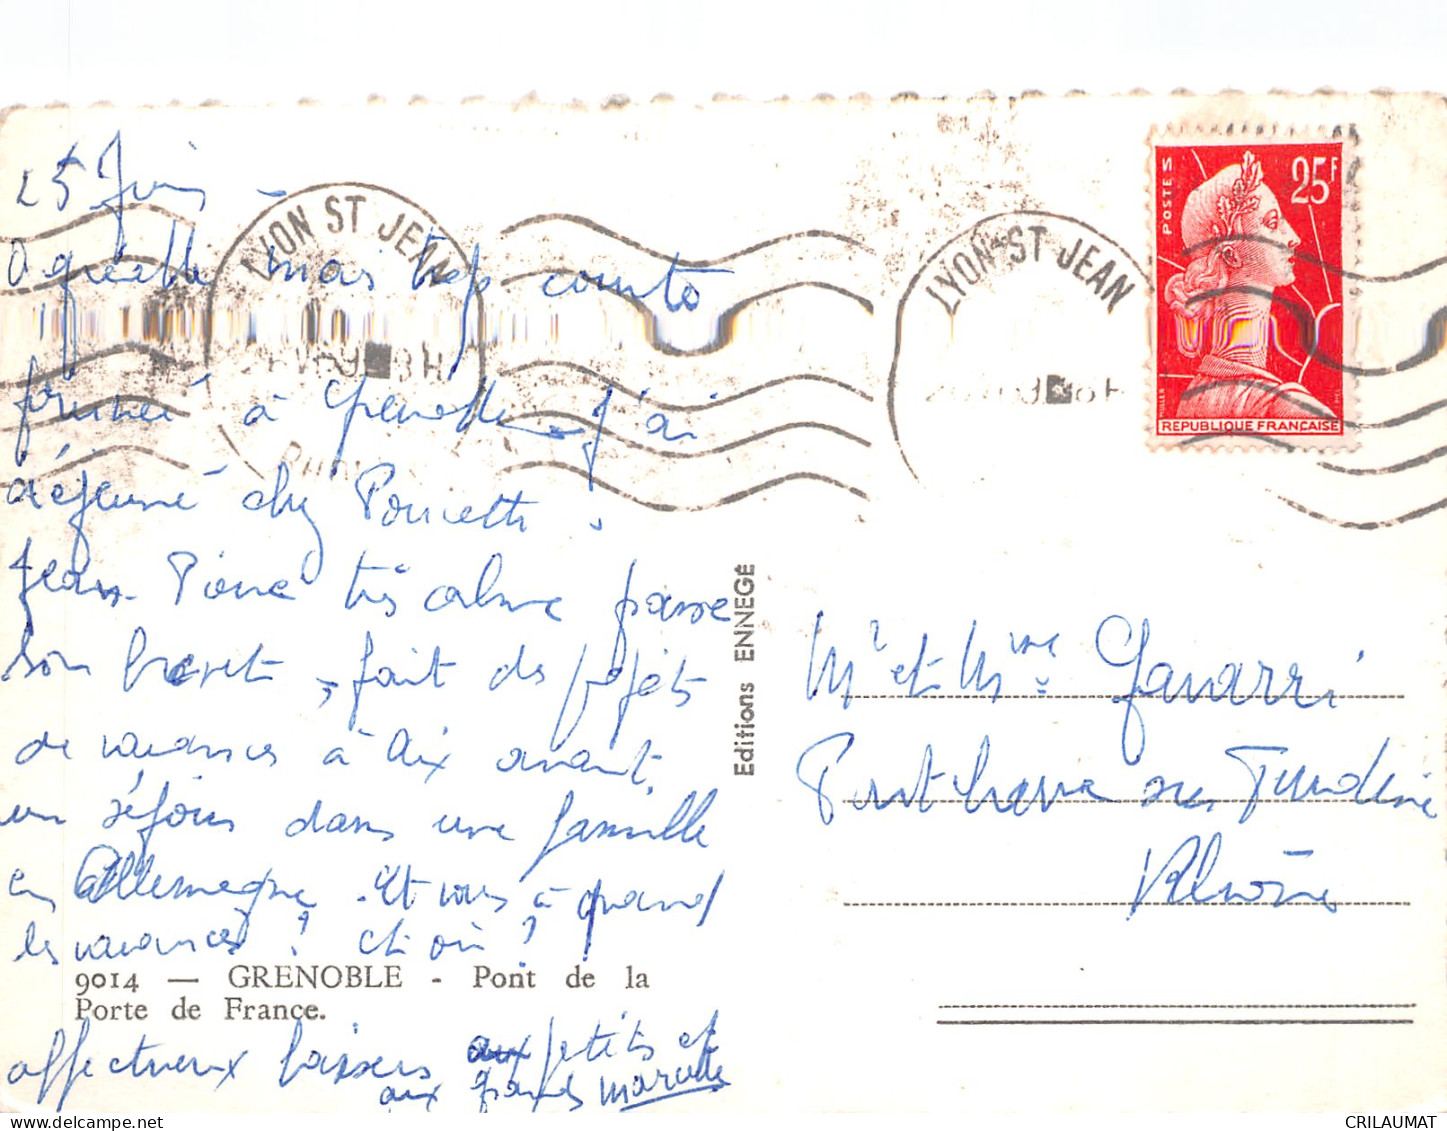 25 Juin -
Agréable mais trop courte
journée à Grenoble j'ai
déjeuné chez Poncette.
Jean-Pierre très calme passe
son brevet, fait des projets
de vacances à Aix avant
un séjour dans une famille
en Allemagne. Et vous à quand
les vacances? et où?
9014 — GRENOBLE - Pont de la
Porte de France.
affectueux baisers aux petits et
aux grands
LYON ST JEAN
LYON ST JEAN
POSTES
25F
REPUBLIQUE FRANÇAISE
Editions ENNEGÉ
Mr et Mme Gavarri
Pontcharra sur Turdine
Rhône
CRILAUMAT